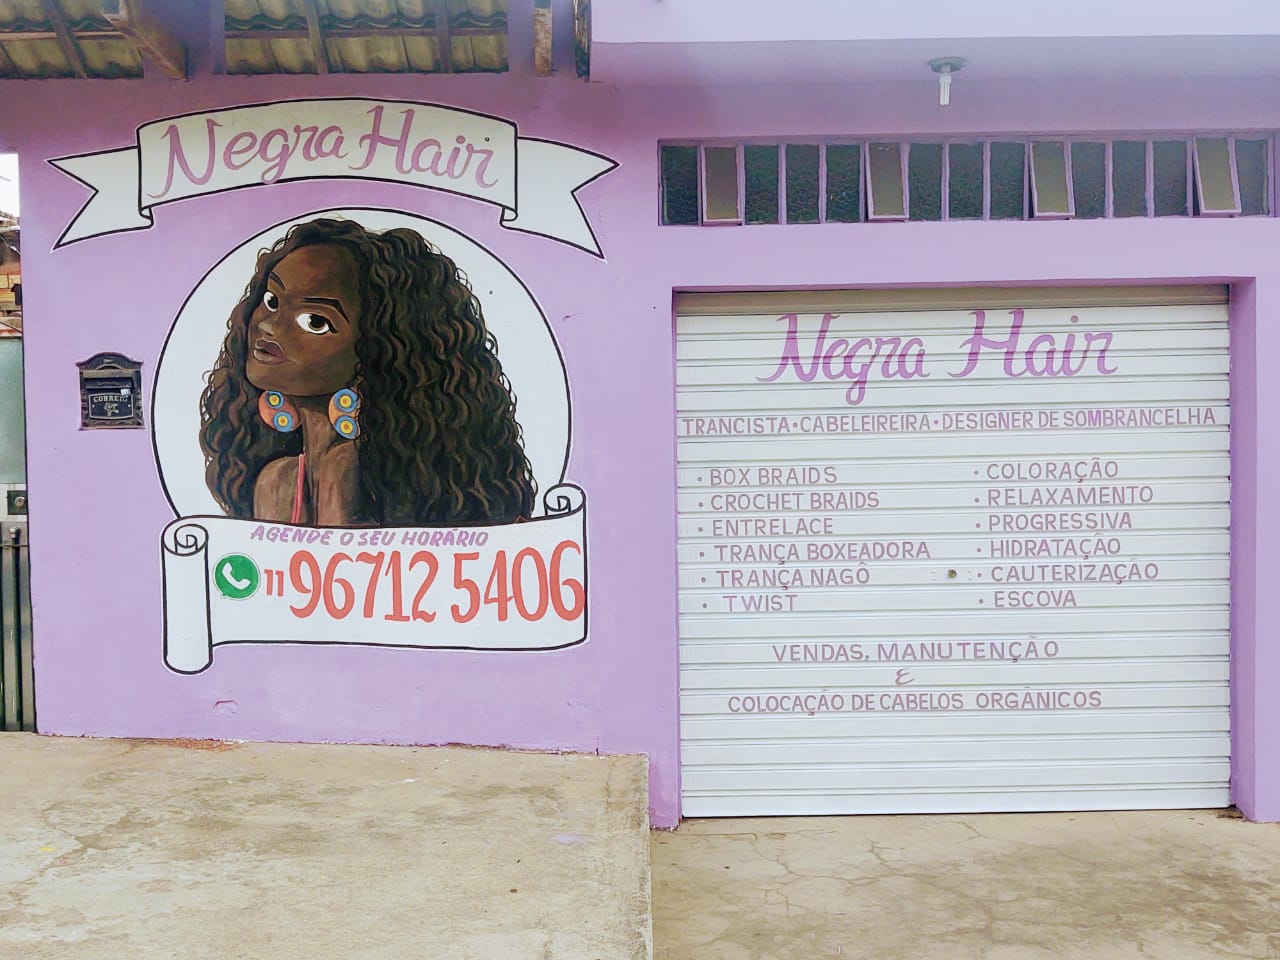 Negra Hair
CORREIO
AGENDE O SEU HORÁRIO
11 96712 5406
Negra Hair
TRANCISTA • CABELEIREIRA • DESIGNER DE SOMBRANCELHA
• BOX BRAIDS
• CROCHET BRAIDS
• ENTRELACE
• TRANÇA BOXEADORA
• TRANÇA NAGÔ
• TWIST
• COLORAÇÃO
• RELAXAMENTO
• PROGRESSIVA
• HIDRATAÇÃO
• CAUTERIZAÇÃO
• ESCOVA
VENDAS, MANUTENÇÃO
E
COLOCAÇÃO DE CABELOS ORGÂNICOS